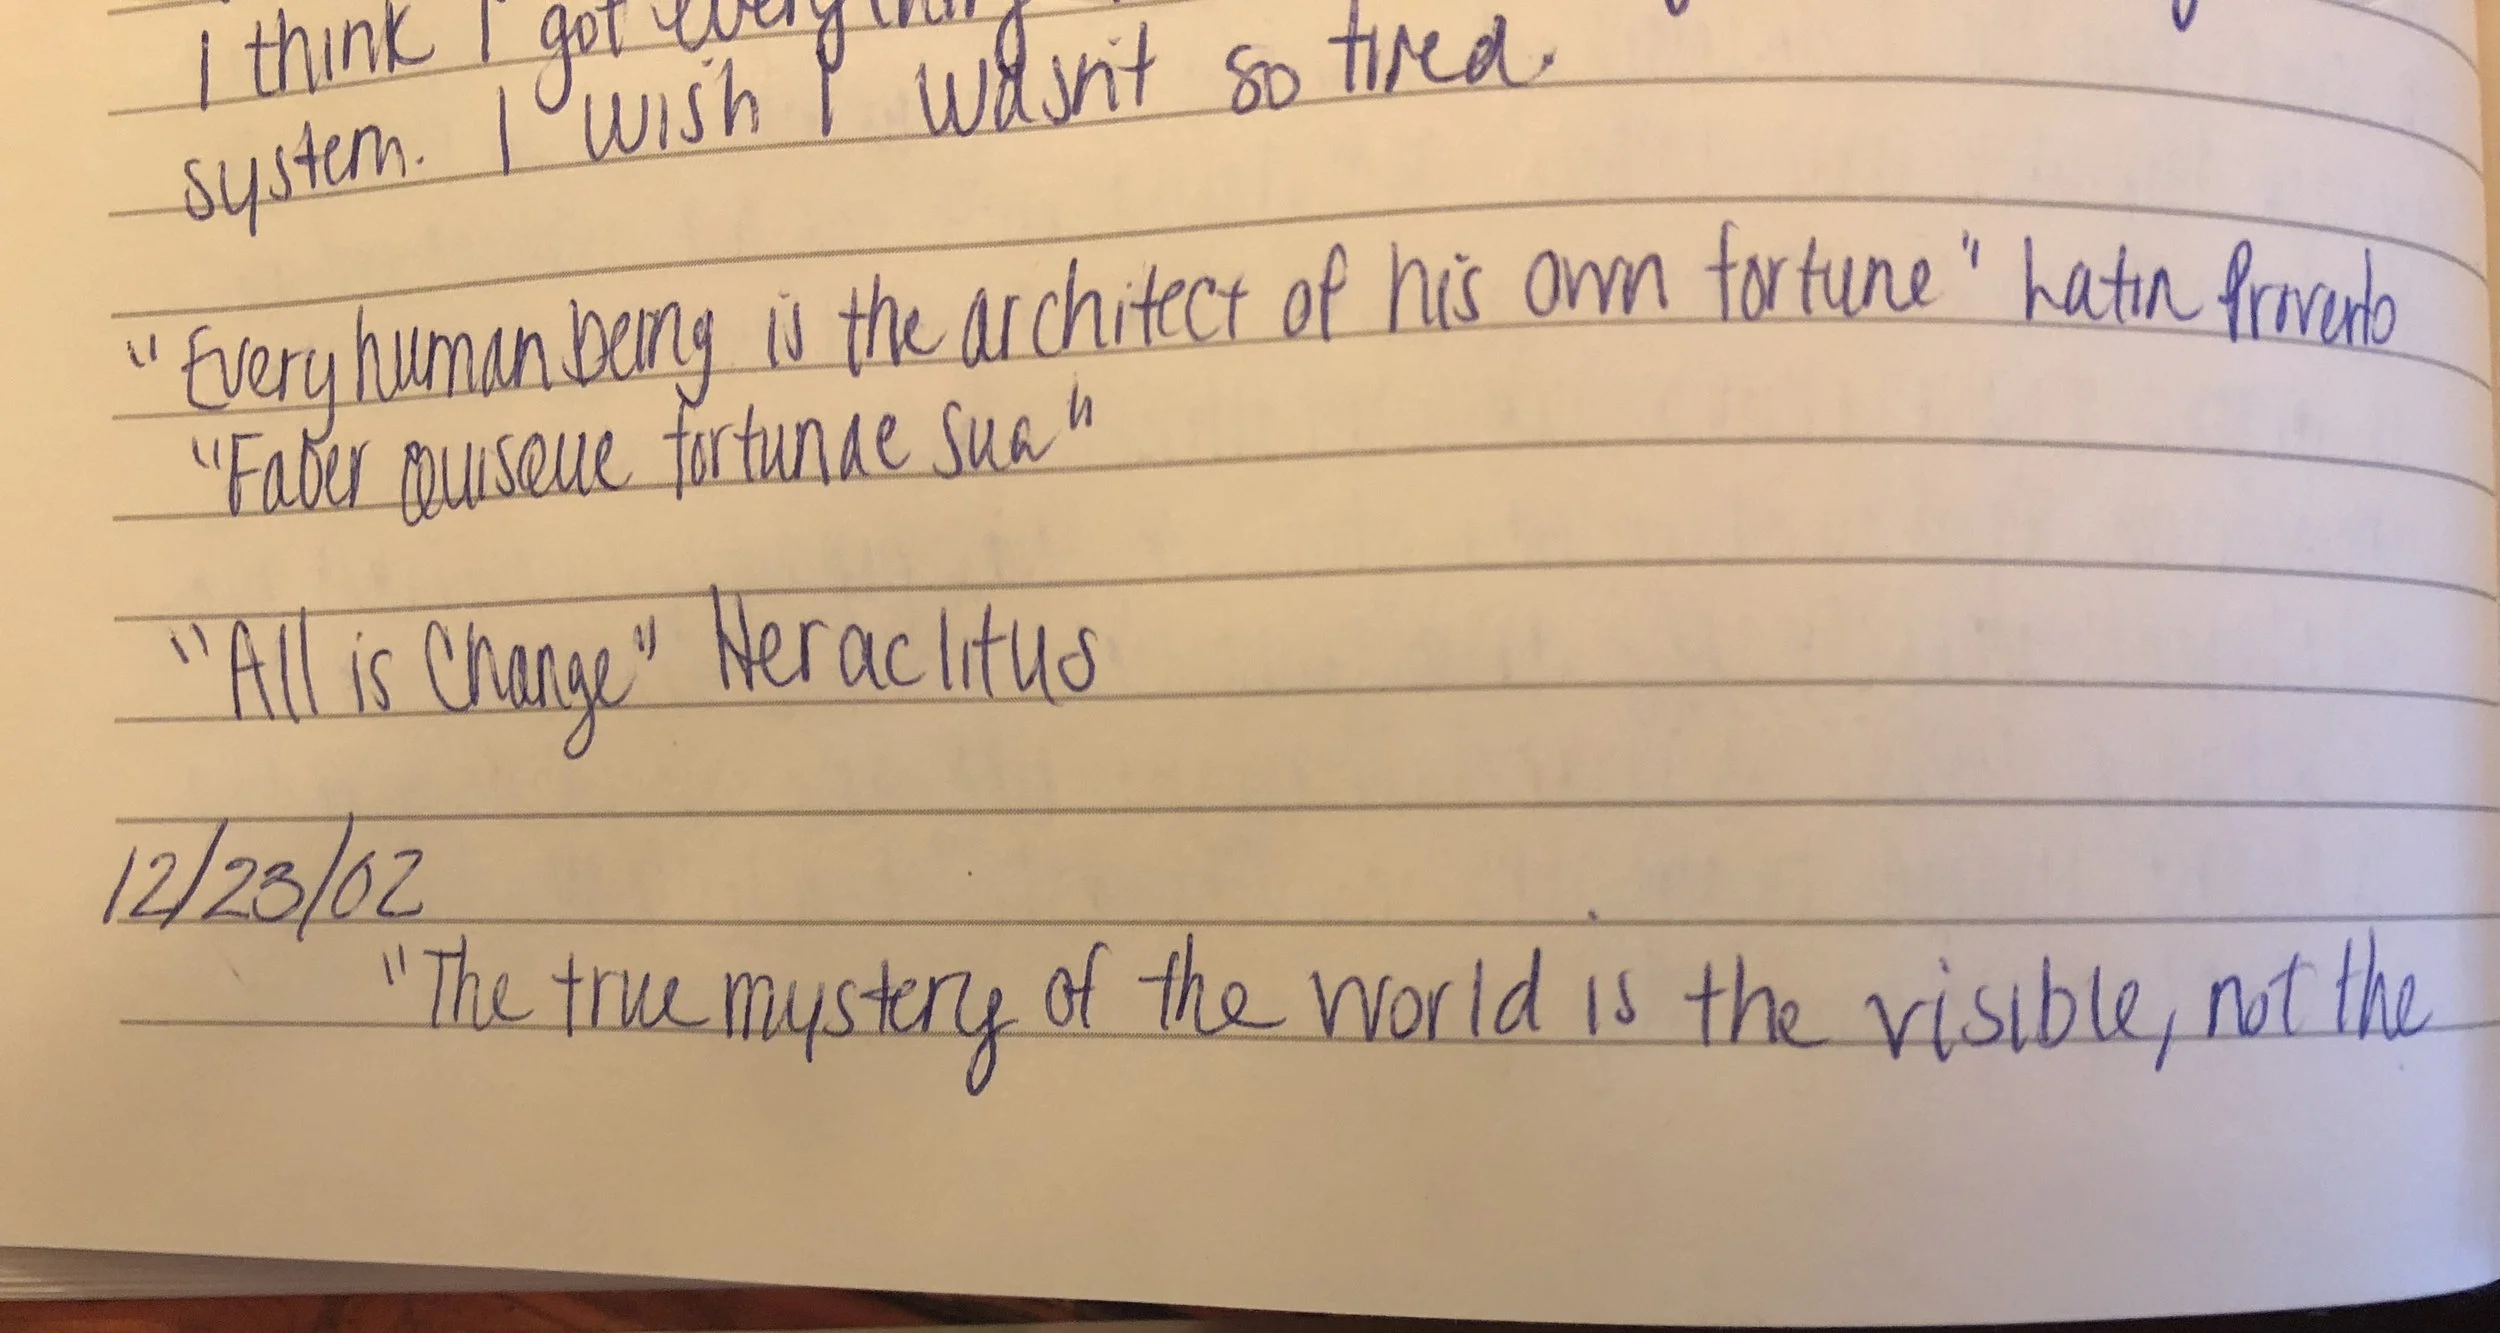 I think I got everything
system. I wish I wasn't so tired.
"Every human being is the architect of his own fortune" Latin Proverb
"Faber quisque fortunae sua"
"All is Change" Heraclitus
12/23/02
"The true mystery of the world is the visible, not the